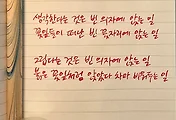 생각한다는 것은 빈 의자에 앉는 일
꽃잎들이 떠난 빈 꽃자리에 앉는 일
그립다는 것은 빈 의자에 앉는 일
붉은 꽃잎처럼 앉았다 차마 비워두는 일